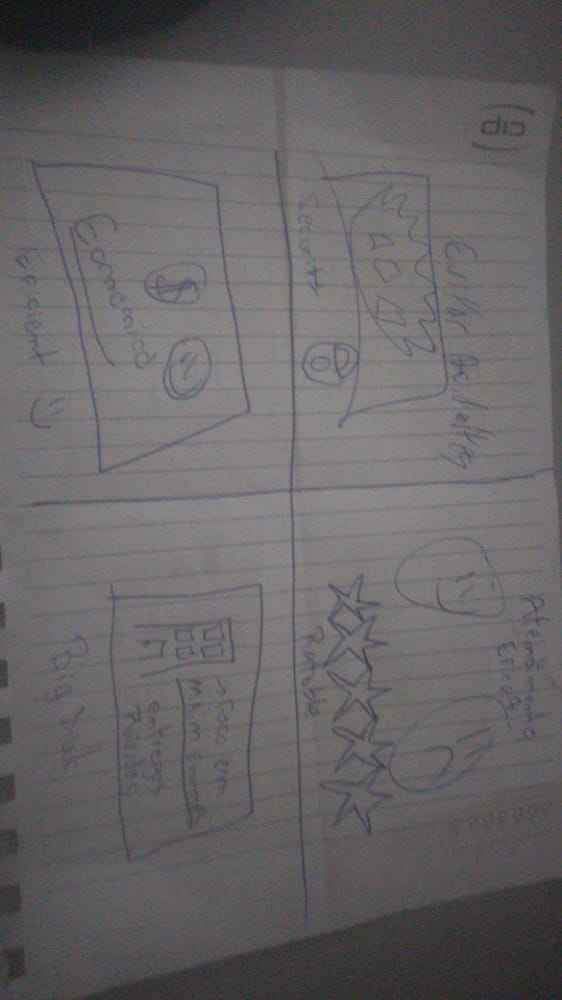 Evitar Acidentes
Security
Atendimento
Eficaz
Ratable
$
Economico
Eficient
→ Foco em
entregas
Rápidas
Big Deal